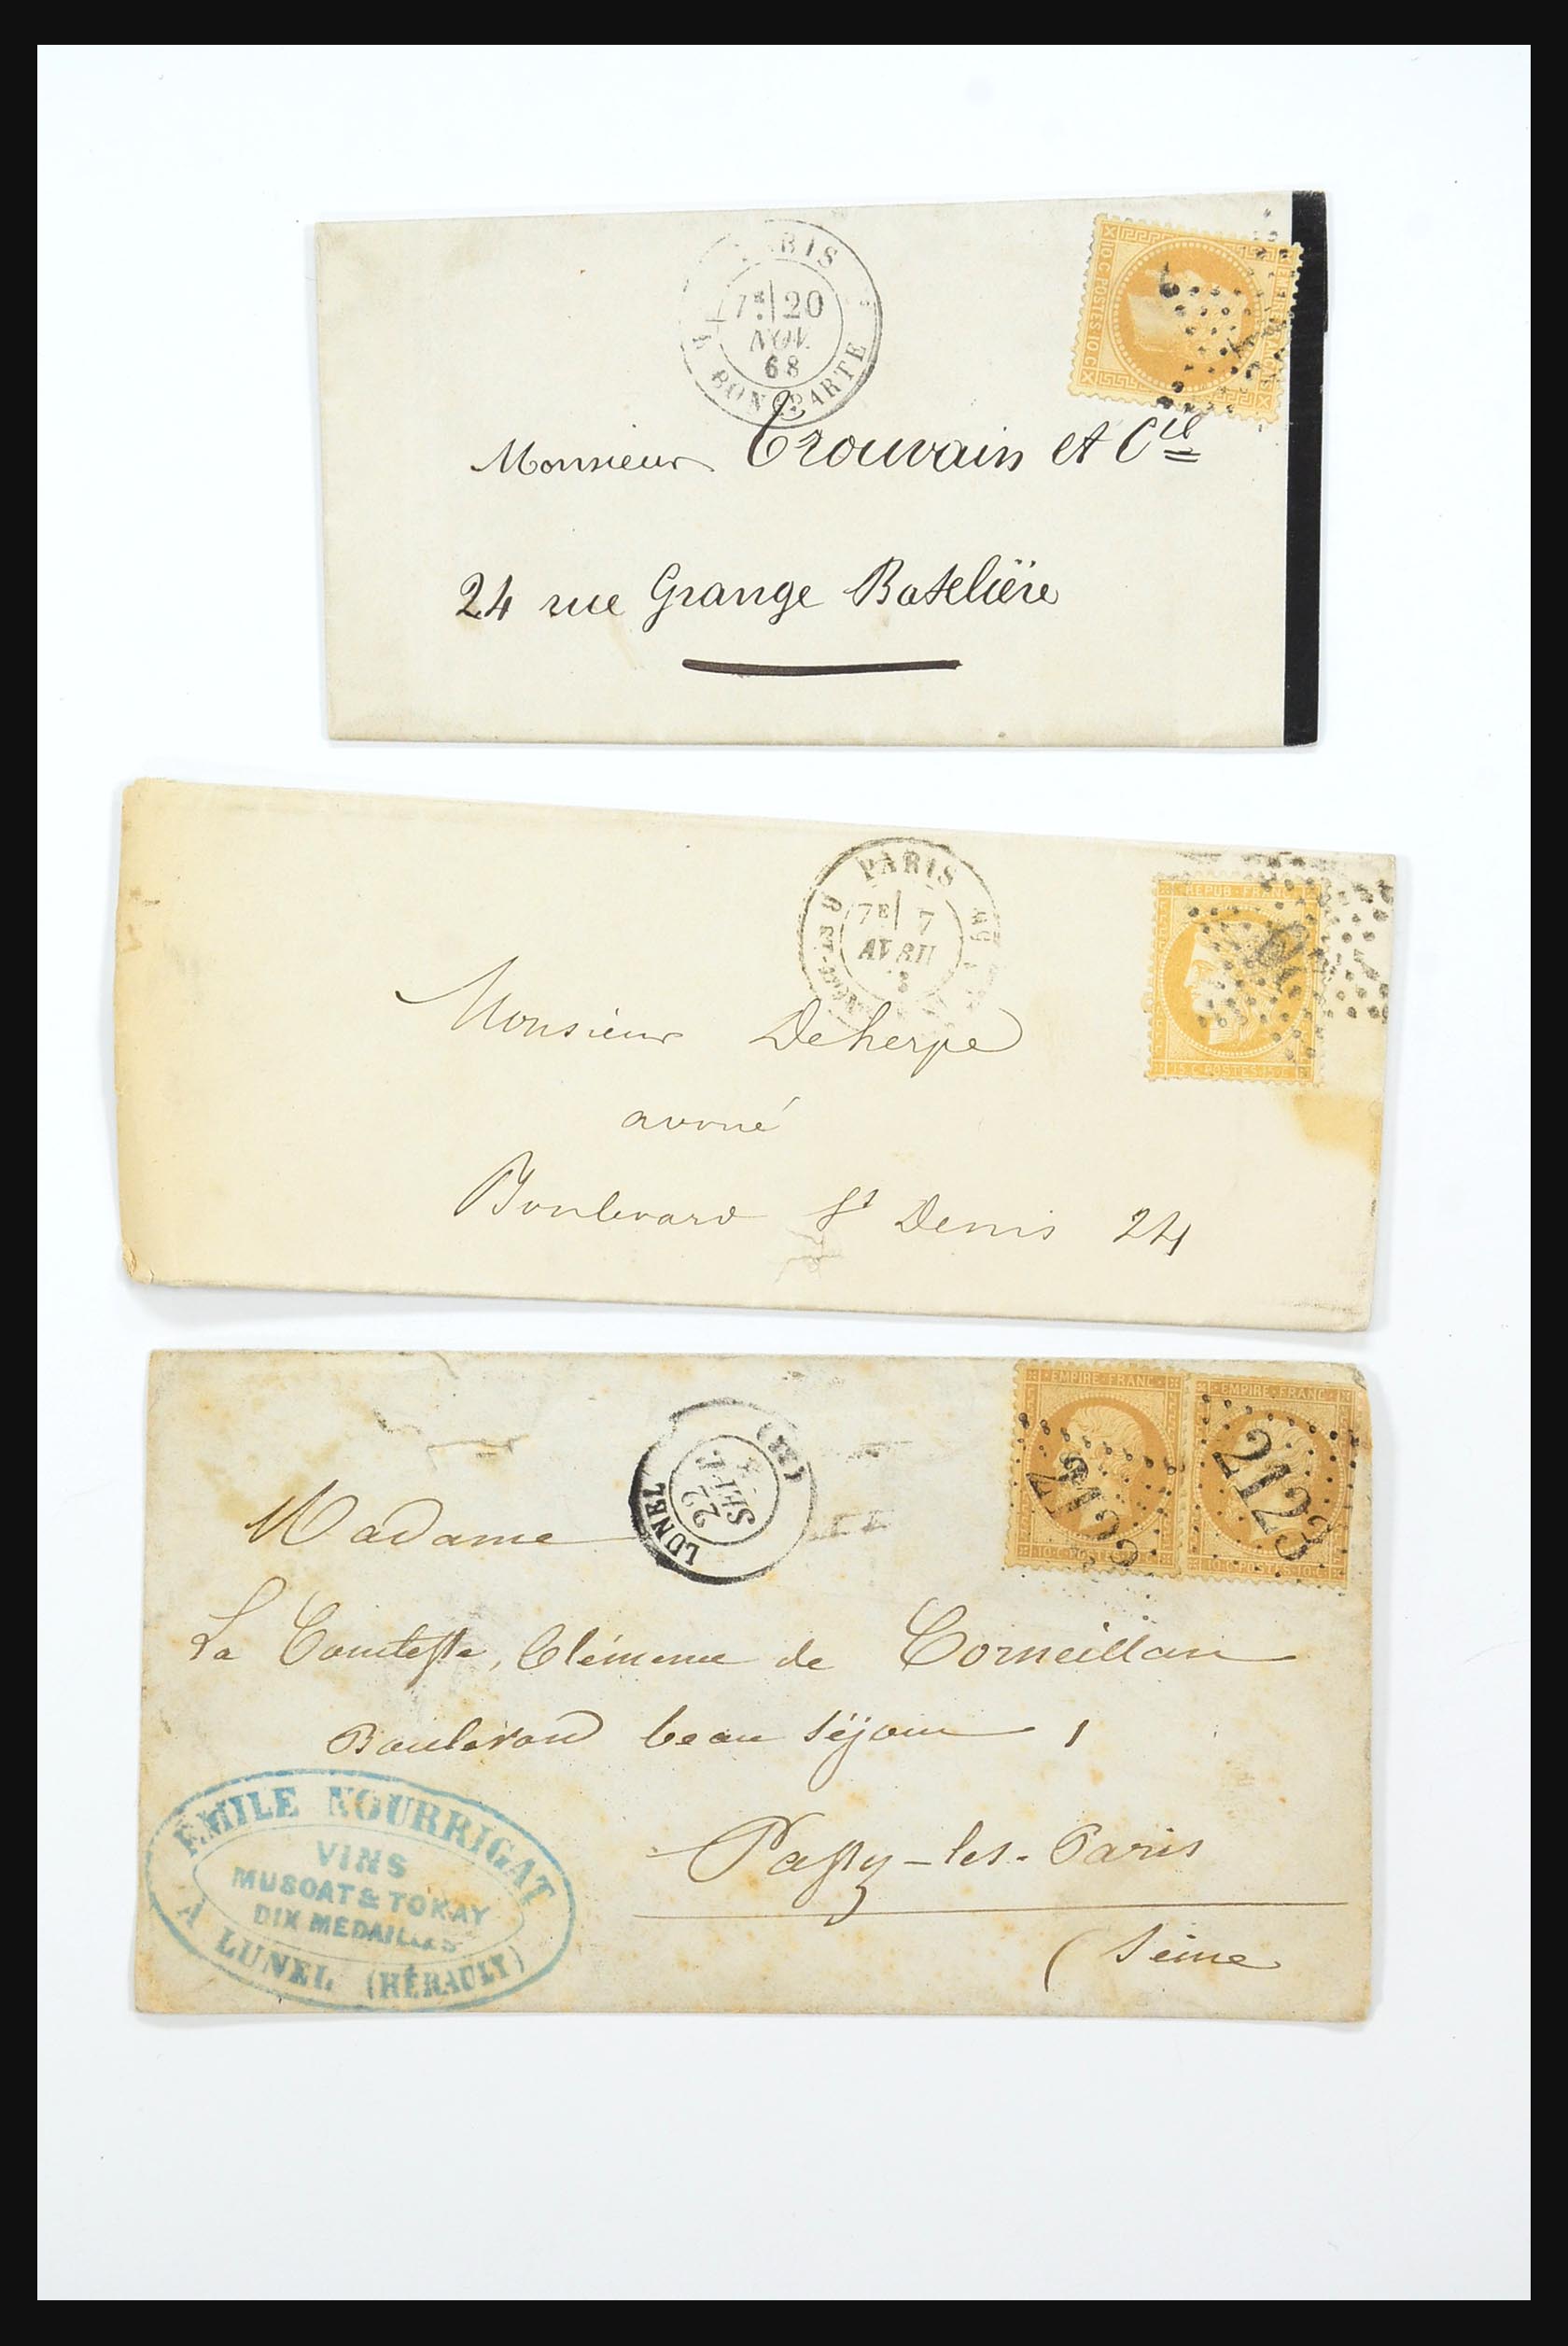 PARIS
7E 20
NOV.
68
R. BONAPARTE
EMPIRE FRANÇAIS
10 C POSTES 10 C
Monsieur Trouvain et Cie
24 rue Grange Batelière
PARIS
7E 7
AVRIL
REPUB. FRANC.
15 C. POSTES 15 C.
Monsieur Deherpe
avoué
Boulevard St Denis 24
LUNEL (32)
22
SEPT.
EMPIRE FRANC.
10 C. POSTES 10 C.
2123
EMPIRE FRANC.
10 C. POSTES 10 C.
2123
Madame
La Comtesse, Clémence de Corneillan
Boulevard beau Séjour 1
Passy-les-Paris
(Seine
EMILE NOURRIGAT
VINS
MUSCAT & TOKAY
DIX MEDAILLES
A LUNEL (HÉRAULT)